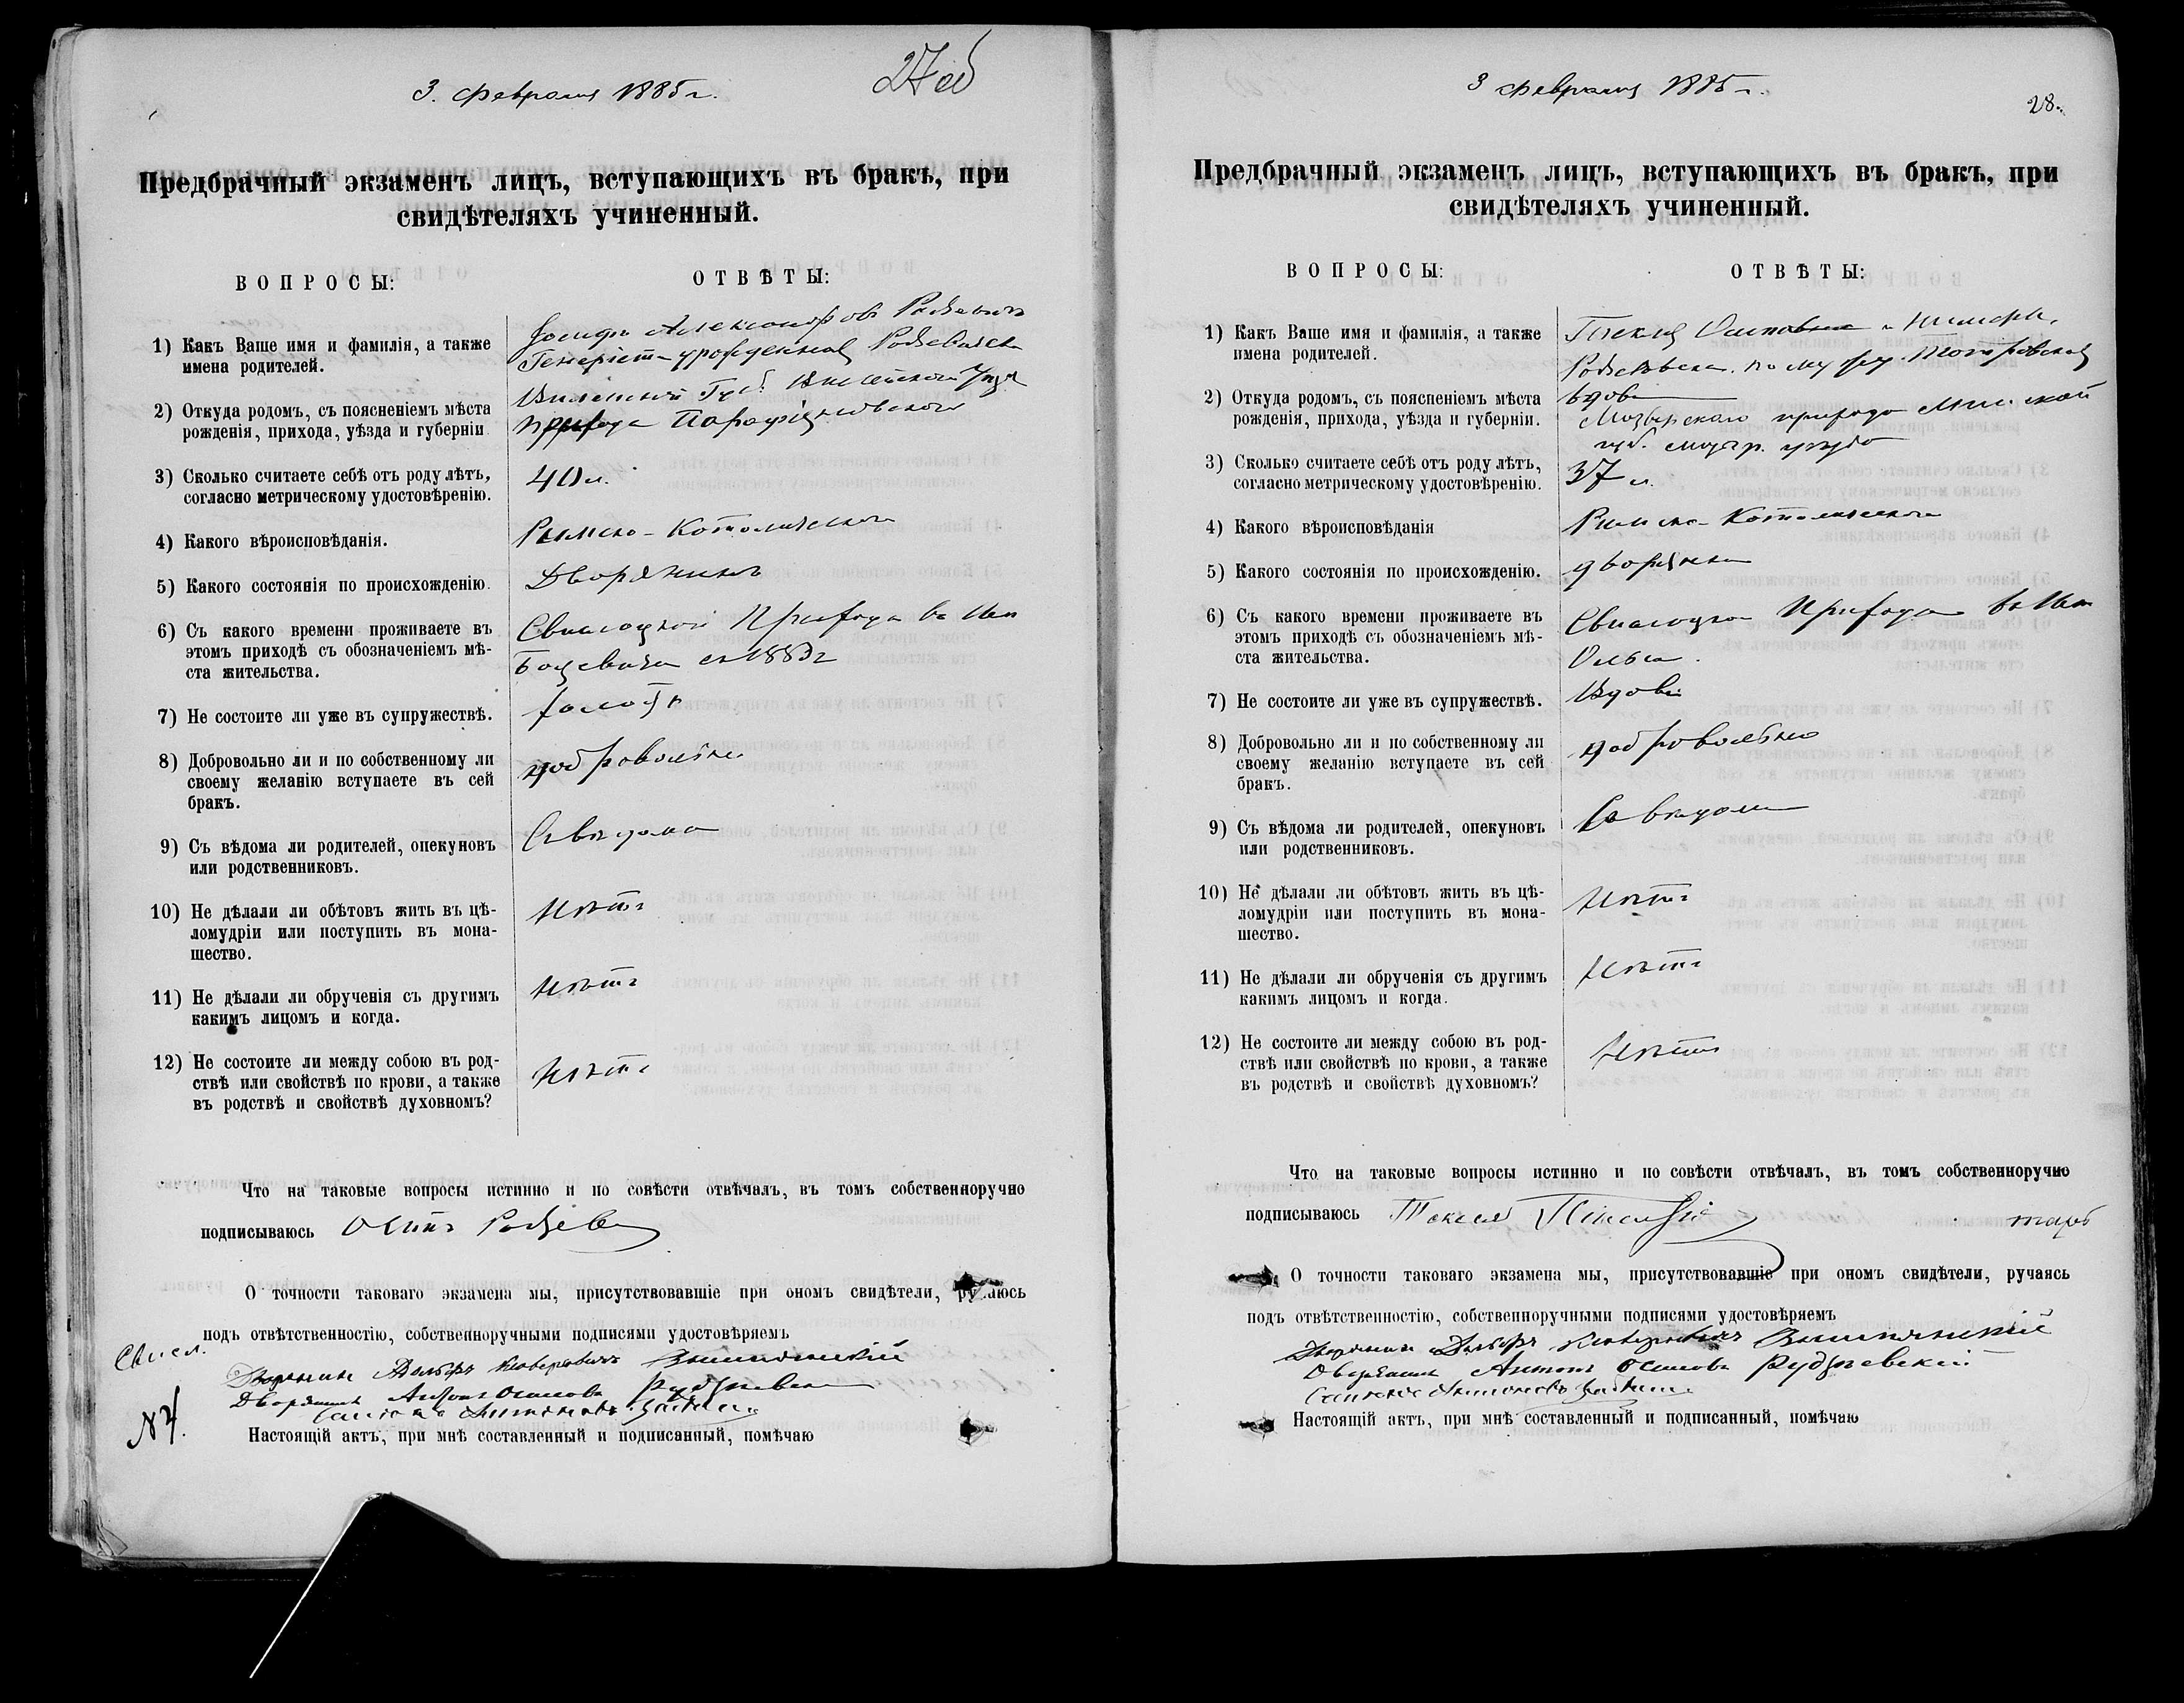 3. февраля 1885 г.
27 об
Предбрачный экзаменъ лицъ, вступающихъ въ бракъ, при
свидѣтеляхъ учиненный.
ВОПРОСЫ:
ОТВѢТЫ:
1) Какъ Ваше имя и фамилія, а также
имена родителей.
2) Откуда родомъ, съ поясненіемъ мѣста
рожденія, прихода, уѣзда и губерніи
Виленской Губ. Вилейскаго
прихода
3) Сколько считаете себѣ отъ роду лѣтъ,
согласно метрическому удостовѣренію.
40 л.
4) Какого вѣроисповѣданія.
Римско-Католическаго
5) Какого состоянія по происхожденію.
Дворянинъ
6) Съ какого времени проживаете въ
этомъ приходѣ съ обозначеніемъ мѣ-
ста жительства.
Прихода въ
7) Не состоите ли уже въ супружествѣ.
холостъ
8) Добровольно ли и по собственному ли
своему желанію вступаете въ сей
бракъ.
добровольно
9) Съ вѣдома ли родителей, опекуновъ
или родственниковъ.
Съ вѣдома
10) Не дѣлали ли обѣтовъ жить въ цѣ-
ломудріи или поступить въ мона-
шество.
Нѣтъ
11) Не дѣлали ли обрученія съ другимъ
какимъ лицомъ и когда.
Нѣтъ
12) Не состоите ли между собою въ род-
ствѣ или свойствѣ по крови, а также
въ родствѣ и свойствѣ духовномъ?
Нѣтъ
Что на таковые вопросы истинно и по совѣсти отвѣчалъ, въ томъ собственноручно
подписываюсь Осипъ
О точности таковаго экзамена мы, присутствовавшіе при ономъ свидѣтели, ручаюсь
подъ отвѣтственностію, собственноручными подписями удостовѣряемъ
Дворянинъ
Дворянинъ Антонъ Осиповъ
N 4.
Настоящій актъ, при мнѣ составленный и подписанный, помѣчаю
3 февраля 1885 г.
28.
Предбрачный экзаменъ лицъ, вступающихъ въ бракъ, при
свидѣтеляхъ учиненный.
ВОПРОСЫ:
ОТВѢТЫ:
1) Какъ Ваше имя и фамилія, а также
имена родителей.
вдова
2) Откуда родомъ, съ поясненіемъ мѣста
рожденія, прихода, уѣзда и губерніи.
Мозырскаго прихода Минской
губ. Мозыр. уѣзда
3) Сколько считаете себѣ отъ роду лѣтъ,
согласно метрическому удостовѣренію.
37 л.
4) Какого вѣроисповѣданія
Римско-Католическаго
5) Какого состоянія по происхожденію.
дворянка
6) Съ какого времени проживаете въ
этомъ приходѣ съ обозначеніемъ мѣ-
ста жительства.
Прихода въ
7) Не состоите ли уже въ супружествѣ.
Вдова
8) Добровольно ли и по собственному ли
своему желанію вступаете въ сей
бракъ.
добровольно
9) Съ вѣдома ли родителей, опекуновъ
или родственниковъ.
Съ вѣдома
10) Не дѣлали ли обѣтовъ жить въ цѣ-
ломудріи или поступить въ мона-
шество.
Нѣтъ
11) Не дѣлали ли обрученія съ другимъ
какимъ лицомъ и когда.
Нѣтъ
12) Не состоите ли между собою въ род-
ствѣ или свойствѣ по крови, а также
въ родствѣ и свойствѣ духовномъ?
Нѣтъ
Что на таковые вопросы истинно и по совѣсти отвѣчалъ, въ томъ собственноручно
подписываюсь
О точности таковаго экзамена мы, присутствовавшіе при ономъ свидѣтели, ручаясь
подъ отвѣтственностію, собственноручными подписями удостовѣряемъ
Дворянинъ
Дворянинъ Антонъ Осиповъ
Настоящій актъ, при мнѣ составленный и подписанный, помѣчаю